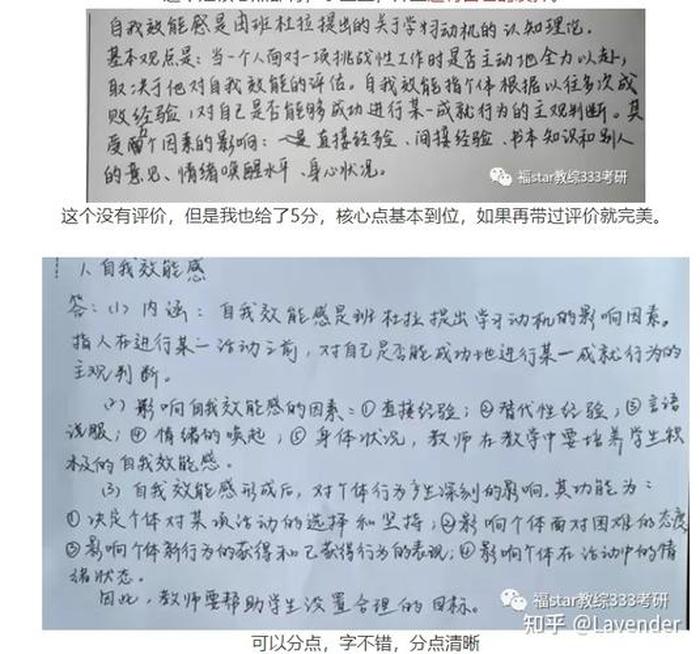 自我效能感是由班杜拉提出的关于学习动机的认知理论.
基本观点是：当一个人面对一项挑战性工作时是否主动地全力以赴，
取决于他对自我效能的评估。自我效能指个体根据以往多次成
败经验，对自己是否能够成功进行某一成就行为的主观判断。其
受两个因素的影响：一是直接经验、间接经验、书本知识和别人
的意见、情绪唤醒水平、身心状况。
福star教综333考研
这个没有评价，但是我也给了5分，核心点基本到位，如果再带过评价就完美。
1、自我效能感
答：(1) 内涵：自我效能感是班杜拉提出学习动机的影响因素。
指人在进行某一活动之前，对自己是否能成功地进行某一成就行为的
主观判断。
(2) 影响自我效能感的因素：①直接经验；②替代性经验；③言语
说服；④情绪的唤起；⑤身体状况，教师在教学中要培养学生积
极的自我效能感。
(3) 自我效能感形成后，对个体行为产生深刻的影响。其功能为：
①决定个体对某项活动的选择和坚持；②影响个体面对困难的态度
③影响个体新行为的获得和已获得行为的表现；④影响个体在活动中的情
绪状态。
因此，教师要帮助学生设置合理的目标。
福star教综333考研
知乎 @Lavender
可以分点，字不错，分点清晰